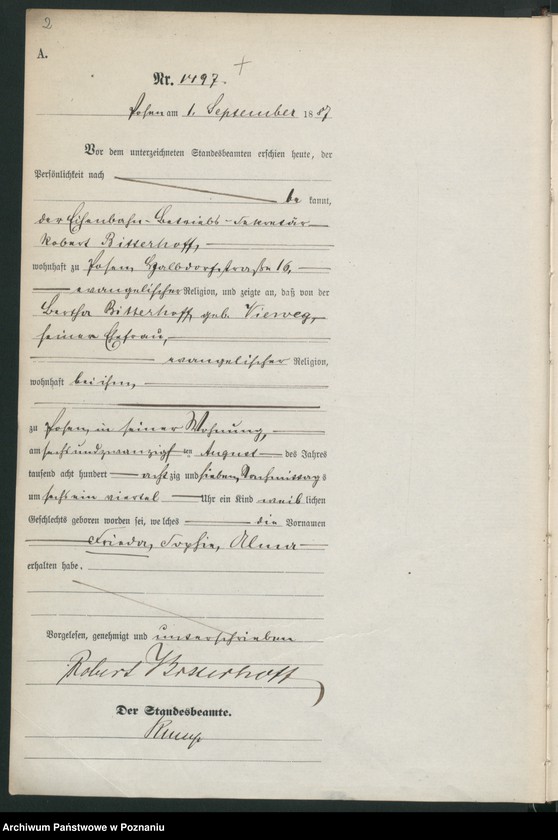 2
A.
Nr. 1497.
Posen am 1. September 1887
Vor dem unterzeichneten Standesbeamten erschien heute, der
Persönlichkeit nach
be kannt,
der Eisenbahn-Betriebs-Sekretär
Robert Bitterhoff,
wohnhaft zu Posen Halbdorfstraße 16,
evangelischer Religion, und zeigte an, daß von der
Bertha Bitterhoff geb. Vieweg,
seiner Ehefrau,
evangelischer Religion,
wohnhaft bei ihm,
zu Posen, in seiner Wohnung,
am sechsundzwanzigsten August des Jahres
tausend acht hundert achtzig und sieben, Nachmittags
um sechs ein viertel Uhr ein Kind weiblichen
Geschlechts geboren worden sei, welches die Vornamen
Frieda, Sophie, Alma
erhalten habe.
Vorgelesen, genehmigt und unterschrieben
Robert Bitterhoff
Der Standesbeamte.
Archiwum Państwowe w Poznaniu